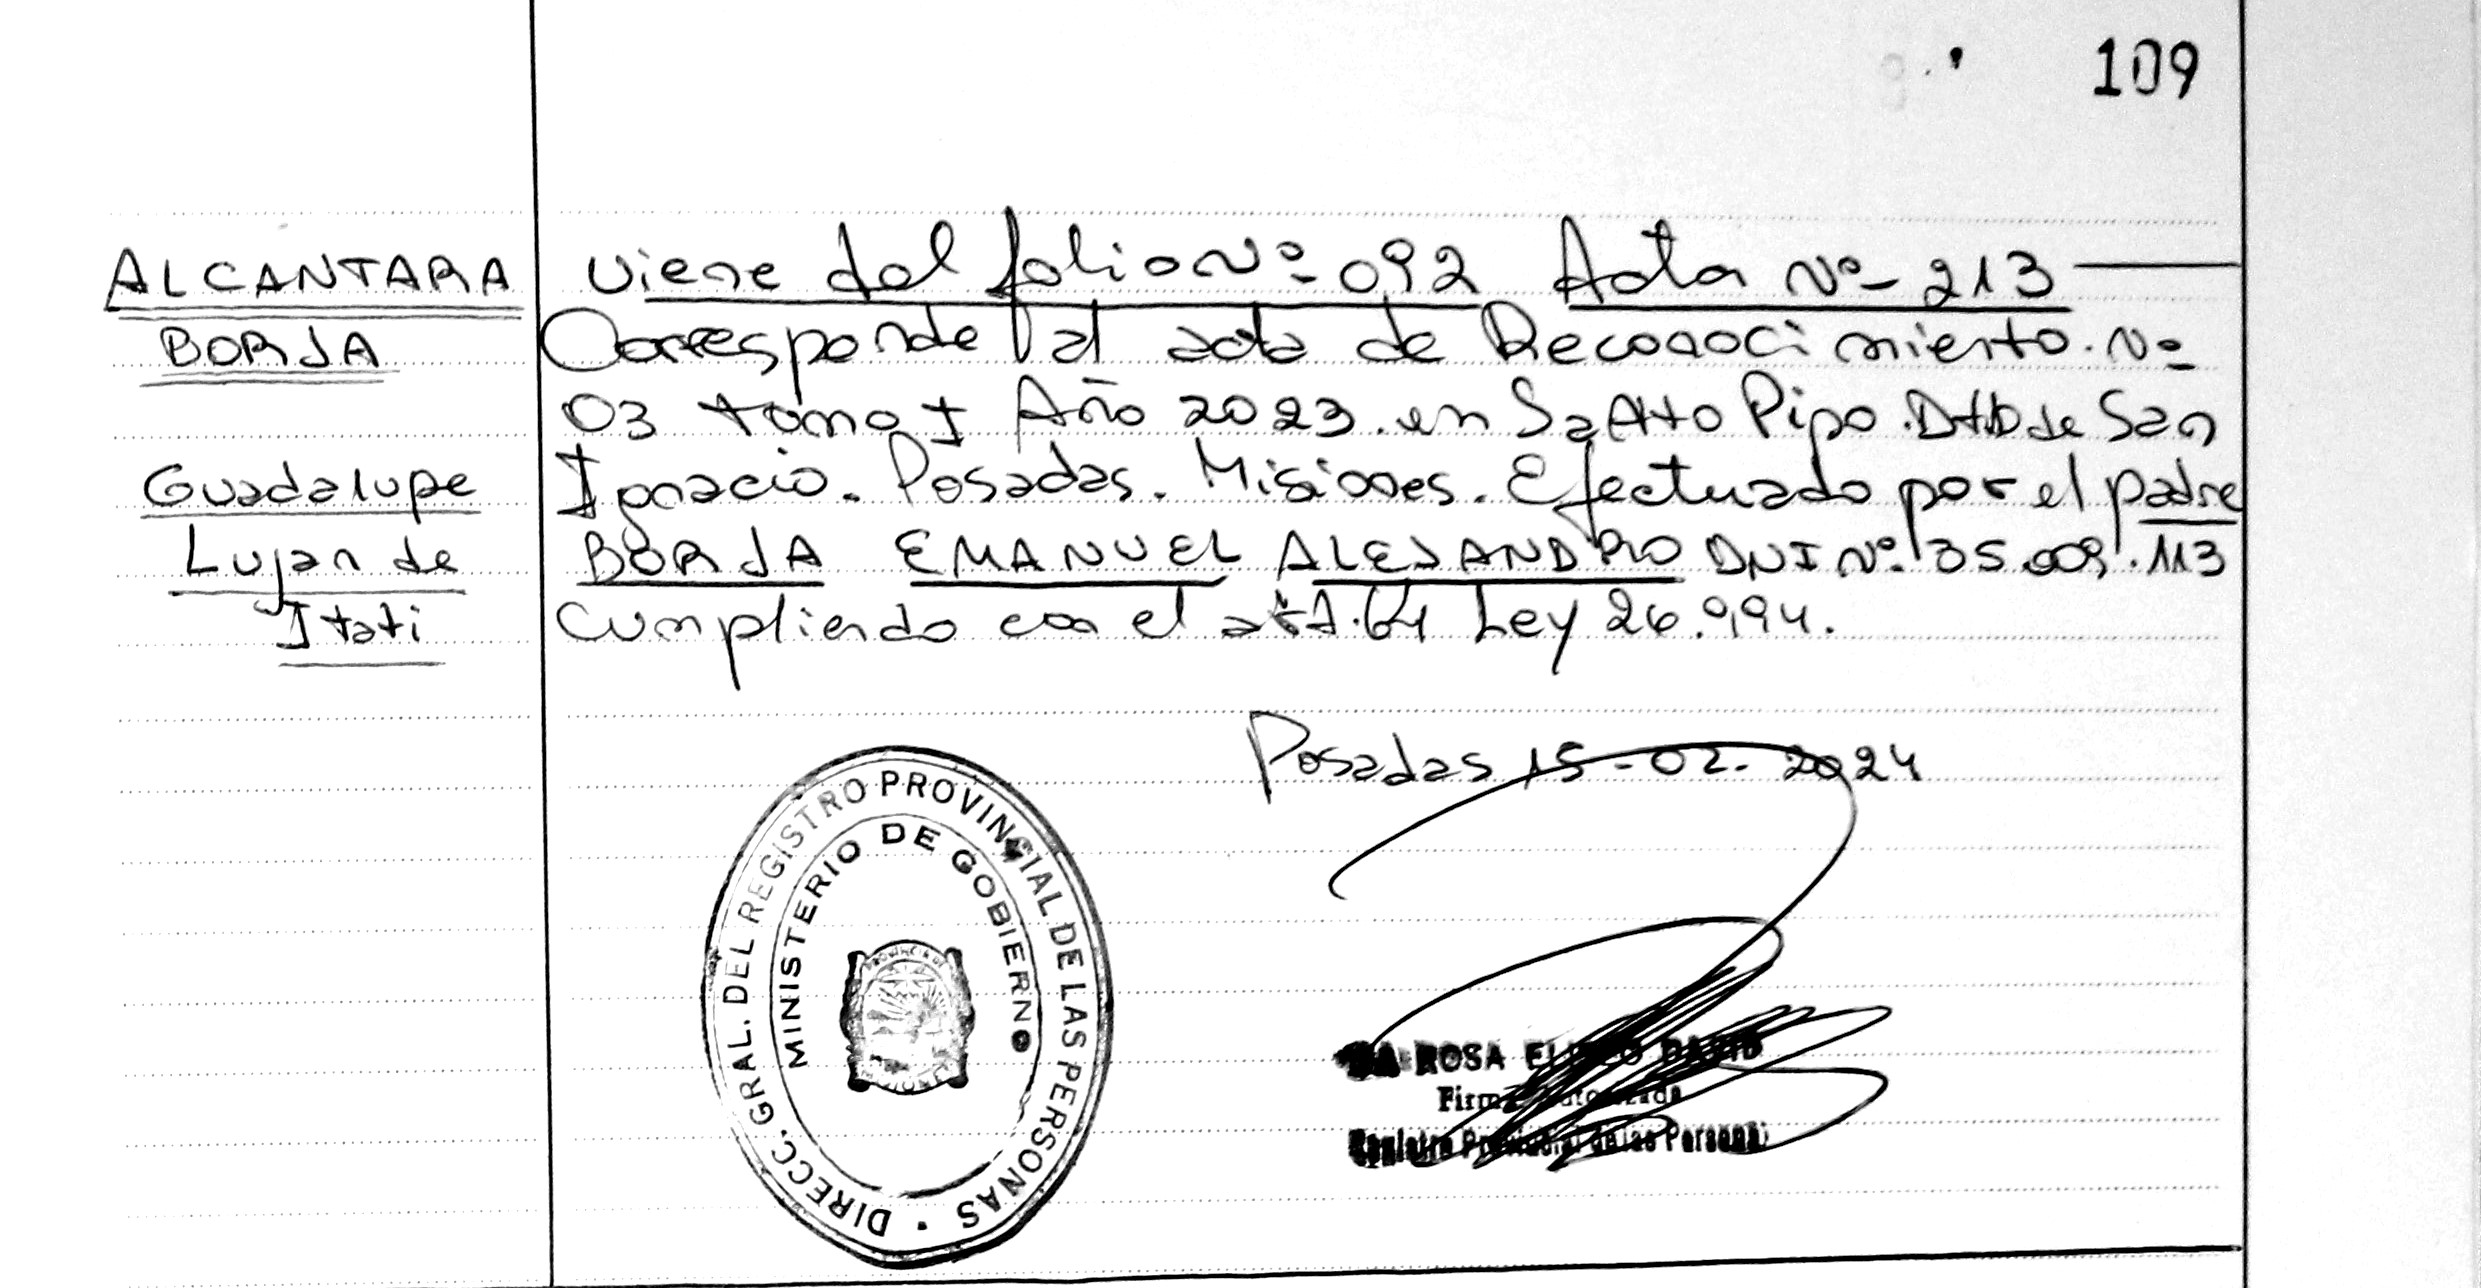 109
ALCANTARA
BORJA
Guadalupe
Lujan de
Itati
Viene del folio Nº 092 Acta Nº 213
Corresponde al acta de Reconocimiento. Nº
03 tomo I Año 2023. en Santo Pipo. Dtto de San
Ignacio. Posadas. Misiones. Efectuado por el padre
BORJA EMANUEL ALEJANDRO DNI Nº. 35.009.113
Cumpliendo con el art. 64 Ley 26.994.
Posadas 15-02-2024
DIRECC. GRAL. DEL REGISTRO PROVINCIAL DE LAS PERSONAS
MINISTERIO DE GOBIERNO
ROSA DAVID
Firma Autorizada
Registro Provincial de las Personas